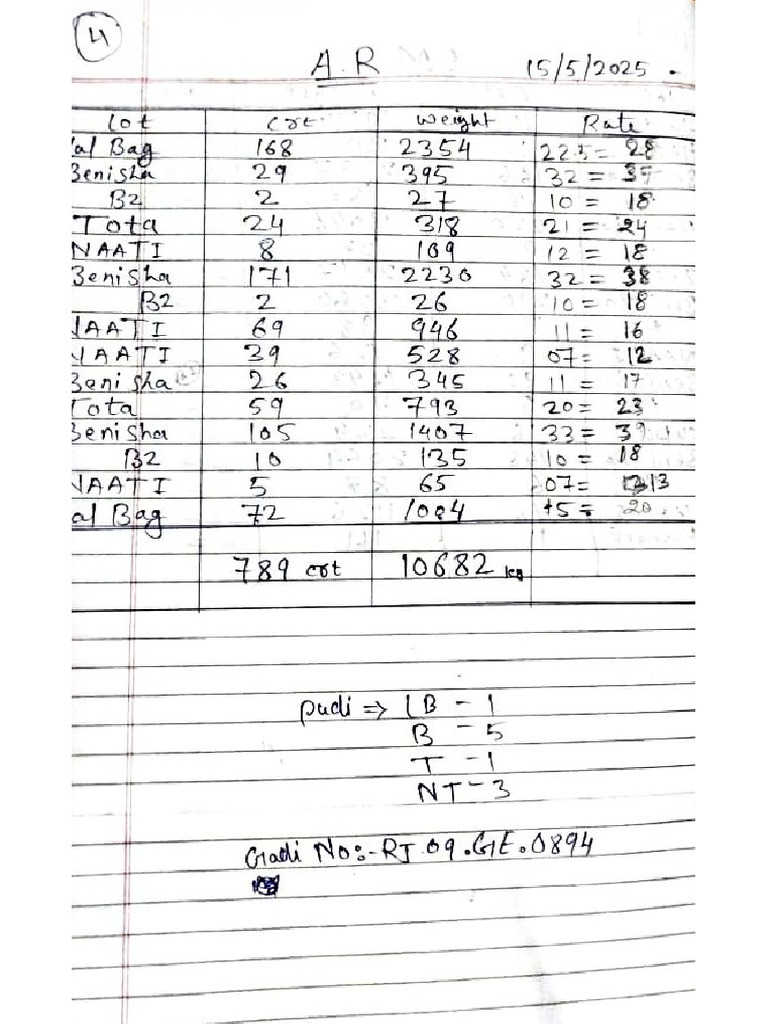 4
A.R
15/5/2025.
Lot crt weight Rate
al Bag 168 2354 22.5 = 28
Benisha 29 395 32 = 35
B2 2 27 10 = 18
Tota 24 318 21 = 24
NAATI 8 109 12 = 18
Benisha 171 2230 32 = 38
B2 2 26 10 = 18
NAATI 69 946 11 = 16
NAATI 39 528 07 = 12
Benisha 26 345 11 = 17
Tota 59 793 20 = 23
Benisha 105 1407 33 = 39
B2 10 135 10 = 18
NAATI 5 65 07 = 13
al Bag 72 1004 15 = 20
789 crt 10682 kg
pudi ⇒ LB - 1
B - 5
T - 1
NT - 3
Gadi No:- RJ.09.GE.0894